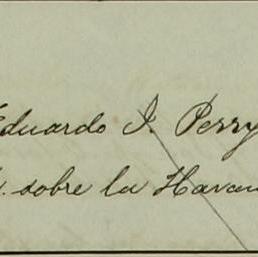 Eduardo J. Perry
. sobre la Havan